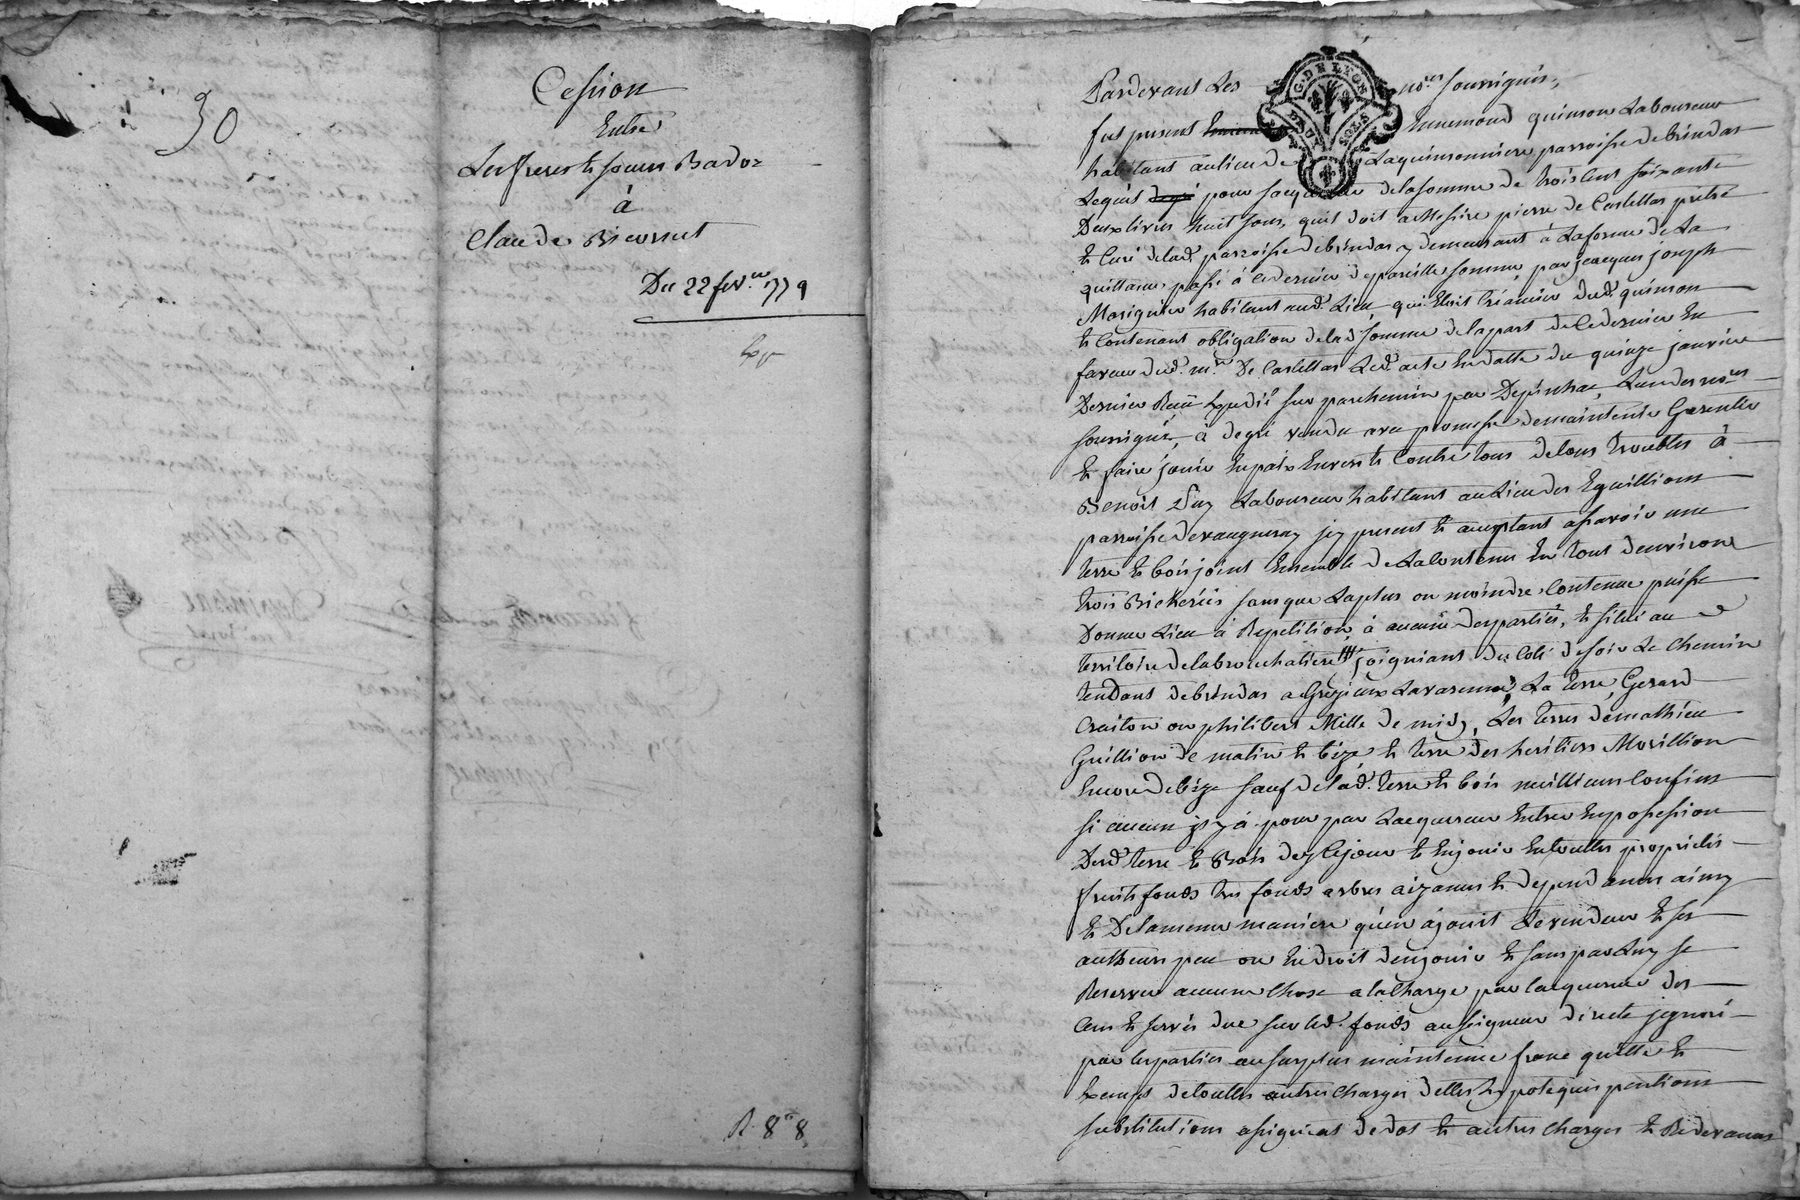 30
Cession
Entre
Les freres & soeurs Badoz
à
Claude Bicornet
Du 22 fev.er 1779
Exp
R. 8# 8s
Pardevant Les no.res soussignés,
G. DE LYON
DEUX SOLS
fut present Ennemond quinson Laboureur
habitant au lieu de Laquinsonniere parroisse de brindas
Lequel pour sacquitter de la somme de trois cent soixante
Deux livres huit sous, quil doit a Messire pierre de Castellas prêtre
& Curé de lad. parroisse de brindas y demeurant à La forme de La
quittance passé à ce dernier de pareille somme par jacques joseph
Marignier habitant aud. Lieu qui Etoit Créancier dud. quinson
& Contenant obligation de lad somme de la part de Ce dernier En
faveur dud. m.re De Castellas Led. acte En datte du quinze janvier
Dernier Reçu Expedié sur parchemin par Depinhac, Lun des no.res
soussignés, à de gré vendu avec promesse de maintenir Garentir
& faire jouir En paix Envers & Contre tous de tous troubles à
Benoit Laboureur habitant au Lieu des Eguillions
parroisse de vaugneray jcy present & acceptant asavoir une
terre & bois joint Ensemble De La Contenue En tout denviron
trois Bicherées sans que La plus ou moindre Contenue puisse
Donner Lieu à Repetition à aucune des parties, & situé au
territoire de labrouchatiere joignant du Coté de soir Le Chemin
tendant de brindas a Grezieux Lavarenne, La terre Gerard
Craiton ou philibert Mille de midy, Les terres de mathieu
Guillion de matin & bize & terre des heritiers Morillion
Encore de bize sauf de lad. terre & bois meillieurs Confins
si aucun jl y à pour par Lacquereur Entrer En possession
Desd. terre & Bois dez Cejour & En jouir En toutes proprietés
fruits fonds tres fonds arbres aizances & dependances ainsy
& De la meme maniere quen a jouit Le vendeur & ses
autheurs peu ou En droit den jouir & sans par Luy se
Reserver aucune Chose a la Charge par lacquereur des
Cens & servis due sur led. fonds au seigneur directe jgnoré
par les parties au surplus maintenue franc quitte &
Exempt de toutes autres Charges dettes hypoteques pentions
substitutions assignat de dot & autres Charges & Redevances